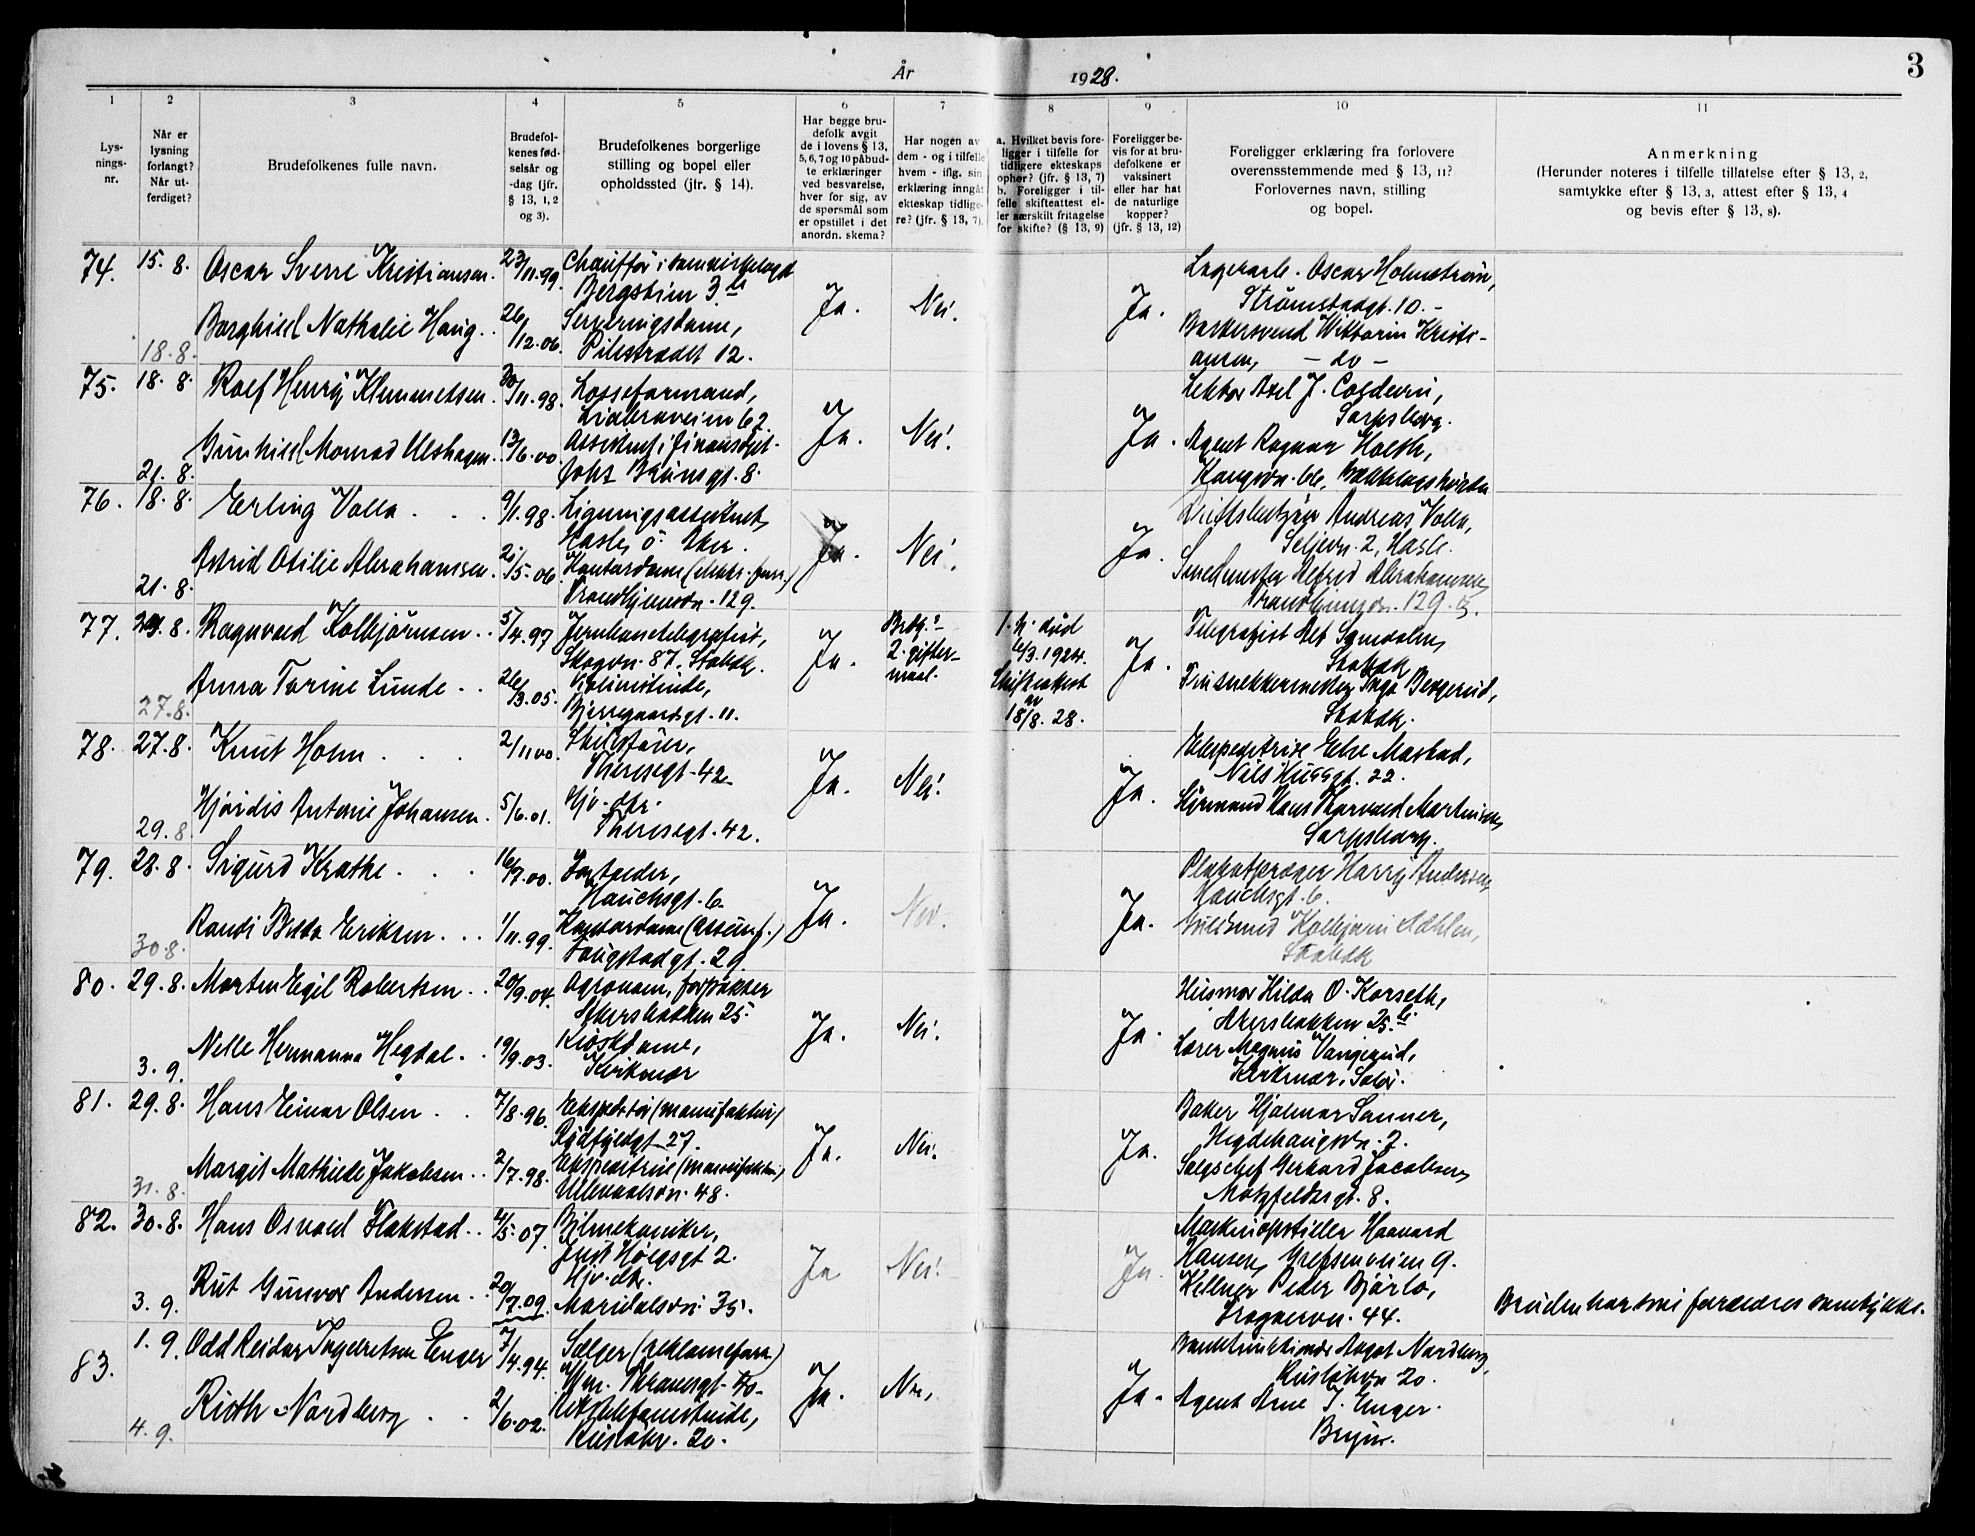 År 1928.
3
1 2 3 4 5 6 7 8 9 10 11
Lysningsnr.
Når er lysning forlangt? Når utferdiget?
Brudefolkenes fulle navn.
Brudefolkenes fødselsår og -dag (jfr. § 13, 1, 2 og 3).
Brudefolkenes borgerlige stilling og bopel eller opholdssted (jfr. § 14).
Har begge brudefolk avgit de i lovens § 13, 5, 6, 7 og 10 påbudte erklæringer ved besvarelse, hver for sig, av de spørsmål som er opstillet i det anordn. skema?
Har nogen av dem - og i tilfelle hvem - iflg. sin erklæring inngåt ekteskap tidligere? (jfr. § 13, 7).
a. Hvilket bevis foreligger i tilfelle for tidligere ekteskaps ophør? (jfr. § 13, 7)
b. Foreligger i tilfelle skifteattest eller særskilt fritagelse for skifte? (§ 13, 9)
Foreligger bevis for at brudefolkene er vaksinert eller har hat de naturlige kopper? (jfr. § 13, 12)
Foreligger erklæring fra forlovere overensstemmende med § 13, 11? Forlovernes navn, stilling og bopel.
Anmerkning
(Herunder noteres i tilfelle tillatelse efter § 13, 2, samtykke efter § 13, 3, attest efter § 13, 4 og bevis efter § 13, 8).
74. 15. 8. Oscar Sverre Kristiansen. 23/11.99. Chauffør i
Bergstien 3 b
Ja. Nei. Ja.
Lagerarb. Oscar Holmstrøm,
Strømstadgt. 10. -
18.8. Borghild Nathalie Haug.. 26/12.06. Serveringsdame,
Pilestrædet 12.
Barbersvend Wiktorin Kristi-
ansen, - do -
75. 18. 8. Rolf Henry Klemmetsen. 30/11.98. Lasseformand,
62
Ja. Nei. Ja.
Lektor Axel J. Coldevin,
Sarpsborg.
21. 8. Gunhild Monrad Ulshagen. 13/6.00. Assistent i
Johs Bruns gt. 8.
Agent Ragnar Holth,
Kongsvn. 66,
76. 18. 8. Erling Volla . . . 9/1.98. Ligningsassistent,
Hasle, Ö. Aker.
Ja. Nei. Ja.
Andreas Volla,
Seljevn. 2, Hasle.
21. 8. Astrid Otilie Abrahamsen. 21/5.06. Kontordame (elektr. forr.)
Trondhjemsvn. 129.
Alfred Abrahamsen,
Trondhjemsvn. 129.
77. 8. Ragnvald Kolbjørnsen.. 5/4.97 Jernbanetelegrafist,
Skogvn. 87. Stabæk.
Ja. Brdg.s
2. gifter-
maal.
1. h. død
6/3.1924.
Skifteattest
av
18/8. 28.
Ja.
Telegrafist Alf
Stabæk
27.8. Anna Torine Lunde.. 26/3.05. Violinistinde,
Bjerregaardsgt. 11.
Inga Bergerud,
Stabæk.
78. 27.8. Knut Holm . . . 2/11 00.
Theresegt. 42
Ja. Nei. Ja.
Ekspeditrise Else Marstad,
Nils Huusgt. 22.
29.8. Hjørdis Antonie Johansen. 5/6.01. Hjv. dtr.
Theresegt. 42.
Styrmand Hans Thorvald Martinsen,
Sarpsborg.
79. 28.8. Sigurd Krathe . . . 16/7.00.
Hauchsgt. 6.
Ja. Nei. Ja.
Harry Andersen,
Hauchsgt. 6.
30.8. Randi Bodda Eriksen... 1/11.99. Kontordame (assuranf.)
Fougstadgt. 29.
Guldsmed Kolbjørn Dæhlen,
Stabæk
80. 29.8. Morten Egil Robertsen.. 20/9.04. Agronom, forpakter
Akersbakken 25.
Ja. Nei. Ja.
Husmor Hilda O. Korseth,
Akersbakken 25.
3. 9. Nelle Hermanna Hegdal.. 19/9.03. Kioskdame,
Kirkenær
Lærer Magnus Vangerud,
Kirkenær, Solør.
81. 29.8. Hans Einar Olsen . . . 7/8.96. Ekspeditør (manufaktur)
Rydfyldgt. 27.
Ja. Nei. Ja.
Baker Hjalmar Sanner,
Hegdehaugsvn. 7.
31. 8. Margit Mathilde Jakobsen.. 2/7.98. Ekspeditrise (manufaktur)
Ullevaalsvn. 48.
Salgschef Gerhard Jacobsen,
Motzfeldtsgt. 8.
82. 30.8. Hans Osvald Flakstad.. 4/5.07. Bilmekaniker,
Just Høegsgt 2.
Ja Nei. Ja.
Maskinopstiller Haavard
Hansen, Grefsenveien 9.
3. 9. Rut Gunvor Andersen.. 20/7.09. Hjv. dtr.
Maridalsvn. 35.
Kellner Peder Bjørlo,
Frognervn. 44.
Bruden har sine forældres samtykke.
83. 1. 9. Odd Reidar Ingebretsen Enger 7/4.94. Sælger (reklameforr.)
Thranesgt. 40
Ja. Nei. Ja.
Aagot Nordberg,
20.
4. 9. Ruth Nordberg . . 2/6.02. Rikstelefonistinde,
20.
Agent Arne I. Enger.
Bryn.